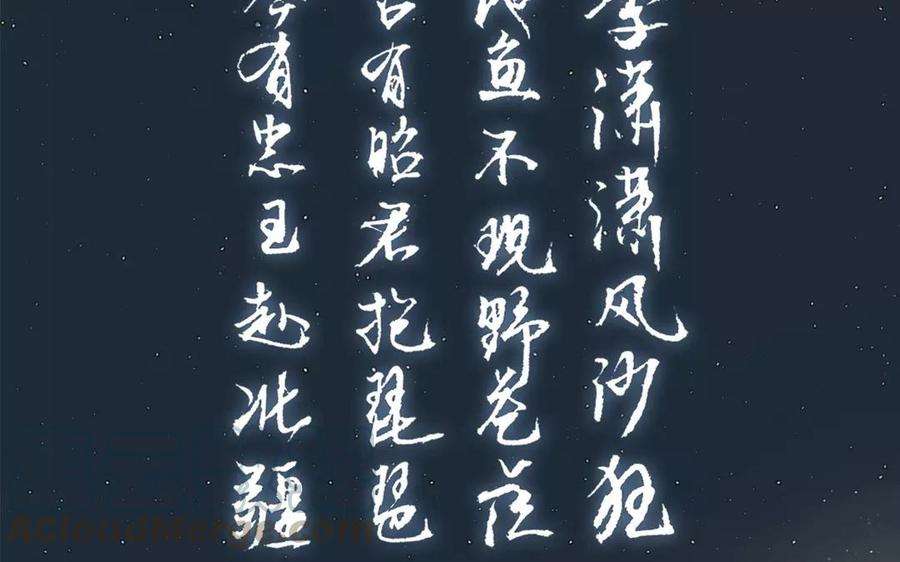 潇潇风沙狂
鱼不现野茫茫
有昭君抱琵琶
有忠王赴北疆
ACloudMerge.com